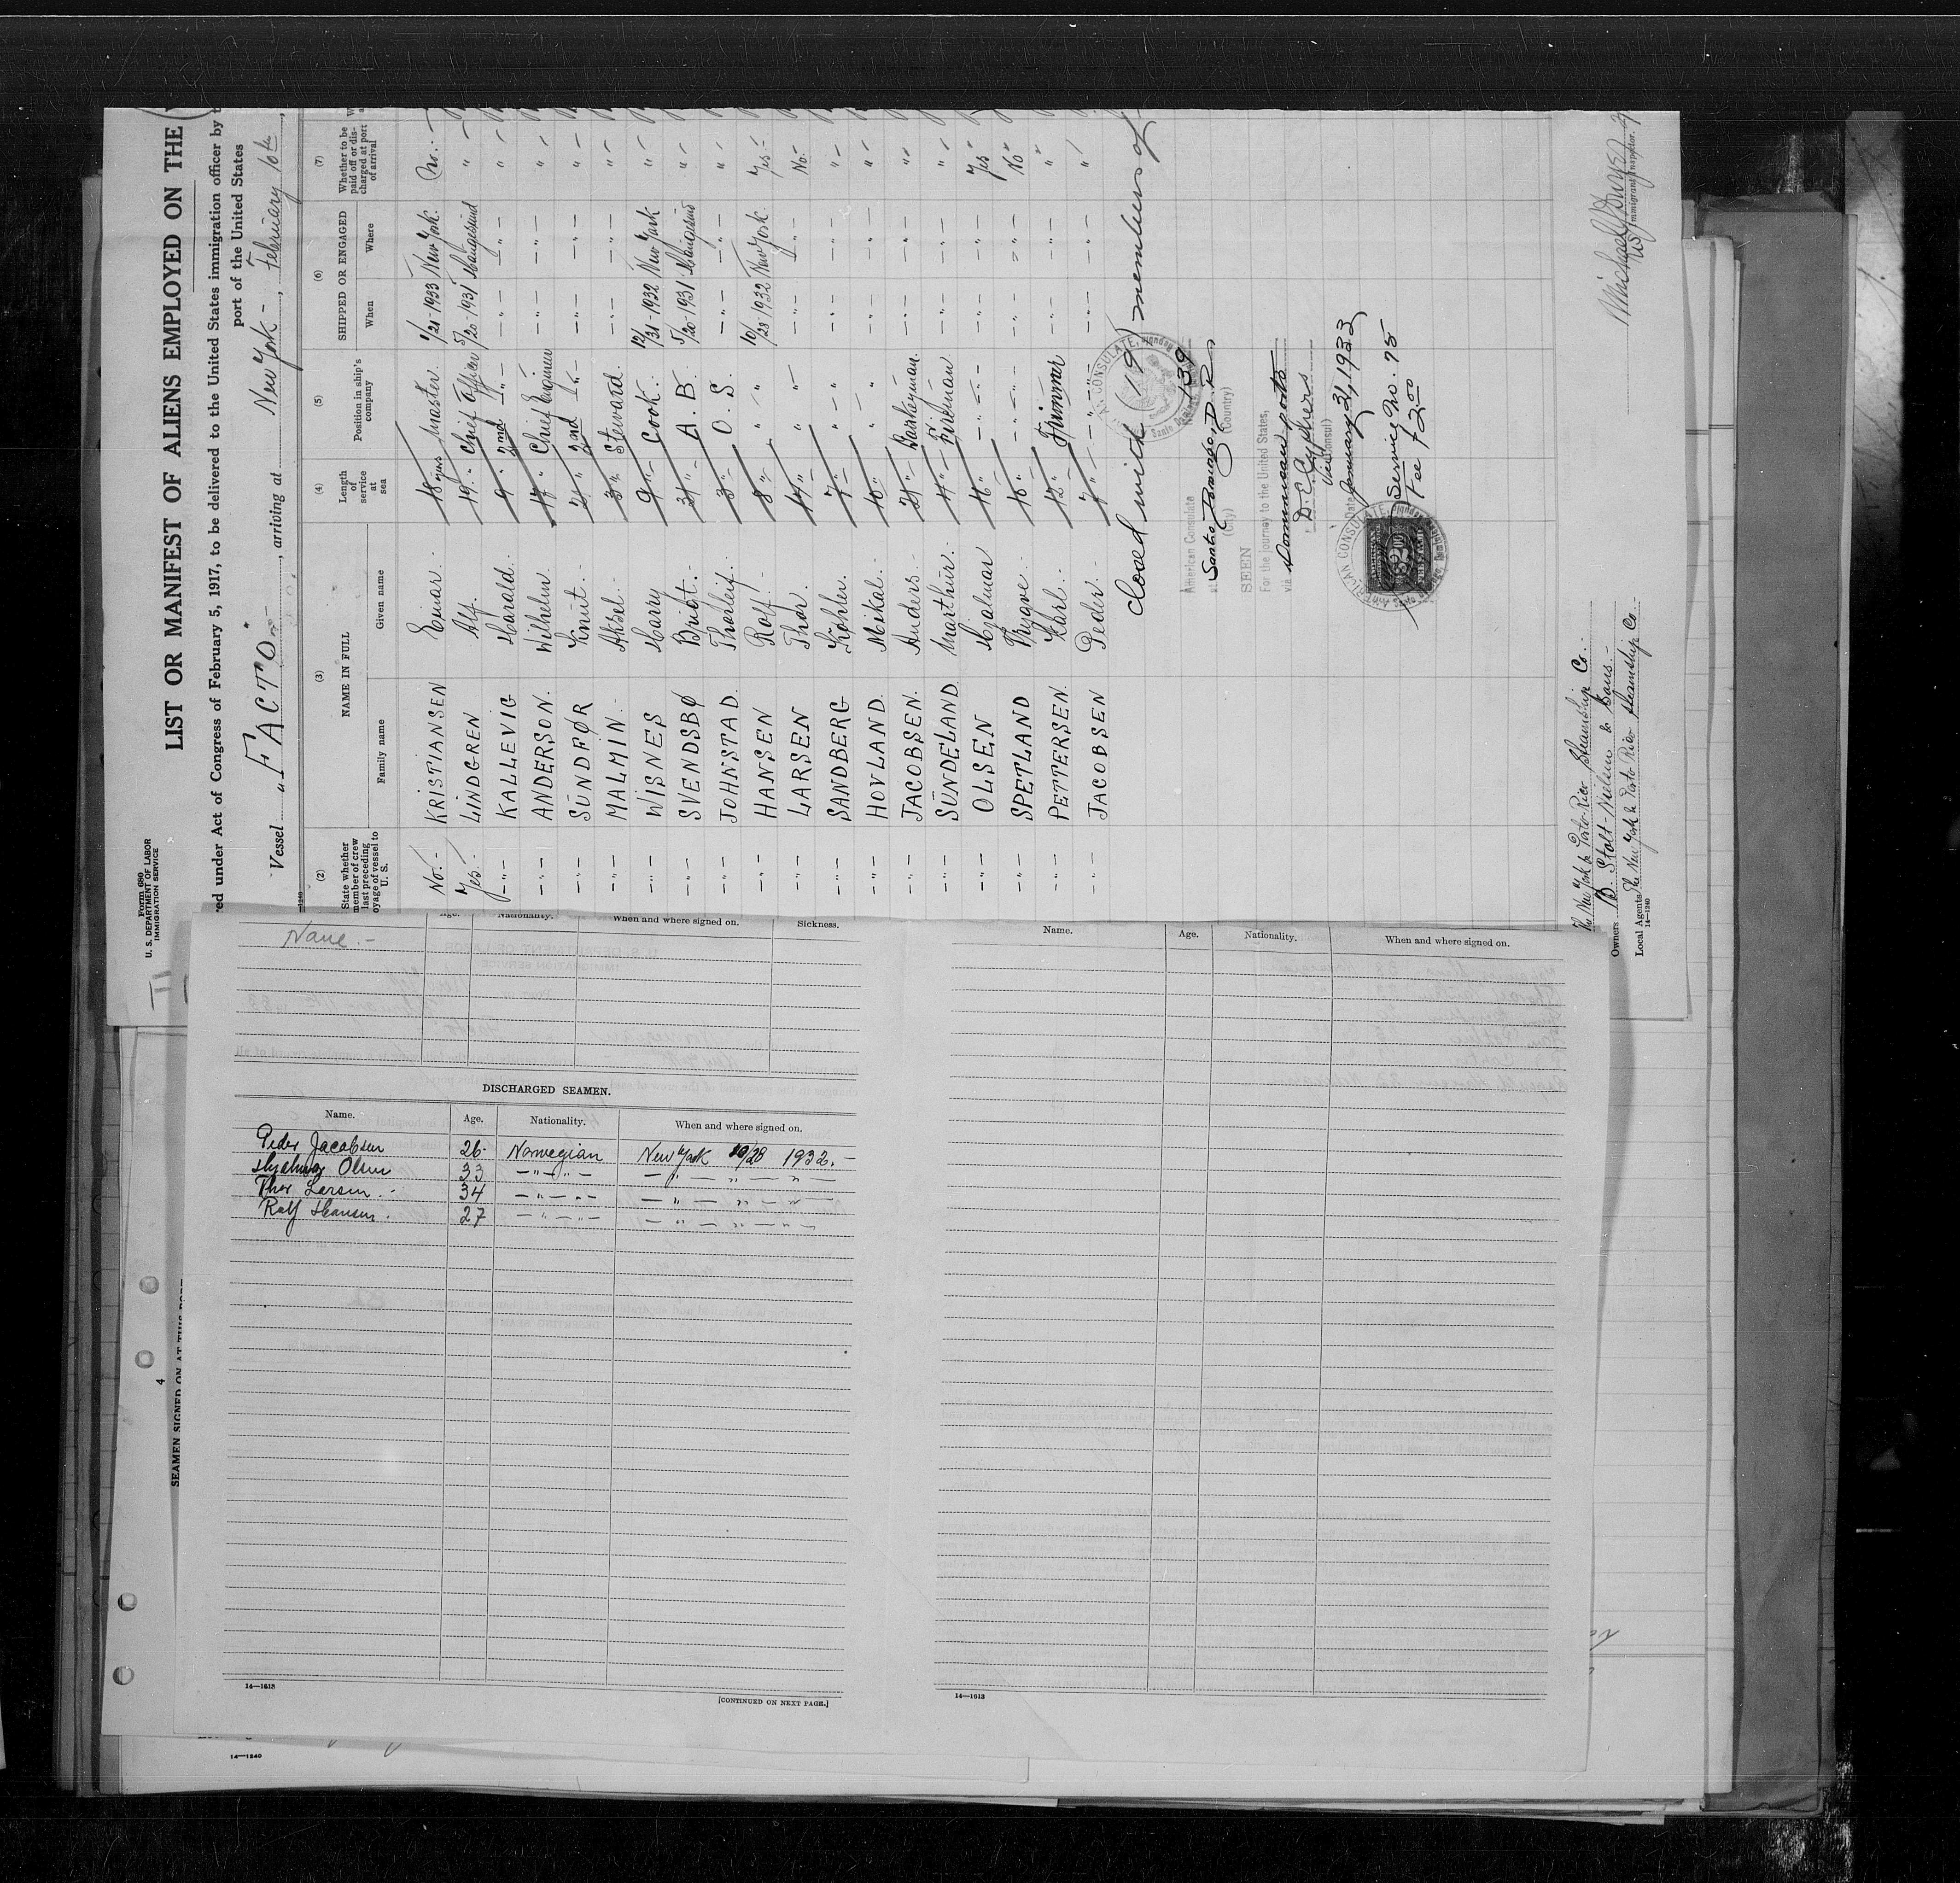 Form 680
U. S. DEPARTMENT OF LABOR
IMMIGRATION SERVICE
LIST OR MANIFEST OF ALIENS EMPLOYED ON THE
red under Act of Congress of February 5, 1917, to be delivered to the United States immigration officer by
port of the United States
Vessel „FACTO" , arriving at New York - , February 10th ,
(2) (3) (4) (5) (6) (7)
State whether member of crew last preceding voyage of vessel to U. S. NAME IN FULL Length of service at sea Position in ship's company SHIPPED OR ENGAGED Whether to be paid off or discharged at port of arrival
Family name Given name When Where
No.- KRISTIANSEN Einar. 18 yrs Master. 1/20-1933 New York. No.-
Yes.- LINDGREN Alf. 19 " Chief Officer 5/20-1931 Haugesund "
-"- KALLEVIG Harald. 9 " 2nd -"- -"- -"- "
-"- ANDERSON. Wilhelm. 17 " Chief Engineer -"- -"- "
-"- SŪNDFØR Knut. 21 " 2nd -"- -"- -"- "
-"- MALMIN. Aksel. 3 " Steward. -"- -"- "
-"- WISNES Harry 9 " Cook. 12/31-1932 New York "
-"- SVENDSBØ Bridt. 31 " A. B. 5/20-1931 Haugesund "
-"- JOHNSTAD. Thorleif. 3 " O. S. -"- -"- "
-"- HANSEN Rolf. 8 " " 10/28-1932 New York. Yes.-
-"- LARSEN Thor. 14 " " -"- -"- No.-
-"- SANDBERG Kohler. 7 " " -"- -"- "
-"- HOVLAND. Mikal. 10 " " -"- -"- "
-"- JACOBSEN. Anders. 21 " Donkeyman. -"- -"- "
-"- SŪNDELAND. Marthin. 11 " Fireman -"- -"- "
-"- OLSEN Hjalmar 16 " -"- -"- -"- Yes
-"- SPETLAND Trygve. 10 " -"- -"- -"- No
-"- PETTERSEN. Karl. 12 " Trimmer -"- -"- "
-"- JACOBSEN Peder. 7 " -"- -"- -"- "
Closed with (19) members of
American Consulate
at Santo Domingo, D. R.
(City) (Country)
SEEN
For the journey to the United States,
via Dominican ports
Vice Consul
Date January 31, 1933
Service No. 75
Fee $2.00
AMERICAN CONSULATE
139
The New York & Porto Rico Steamship Co.
Owners B. Stolt-Nielsen & Sons.-
Local Agents The New York & Porto Rico Steamship Co.-
14—1240
Immigrant Inspector.
Age. Nationality. When and where signed on. Sickness.
None.-
DISCHARGED SEAMEN.
Name. Age. Nationality. When and where signed on.
Peder Jacobsen 26. Norwegian New York 10/28 1932.-
Hjalmar Olsen 33 -"-"- -"-"-"-
Thor Larsen.- 34 -"-"- -"-"-"-
Rolf Hansen. 27 -"-"- -"-"-"-
14—1613
[CONTINUED ON NEXT PAGE.]
Name. Age. Nationality. When and where signed on.
14—1613
4
SEAMEN SIGNED ON AT THIS PORT
14—1240